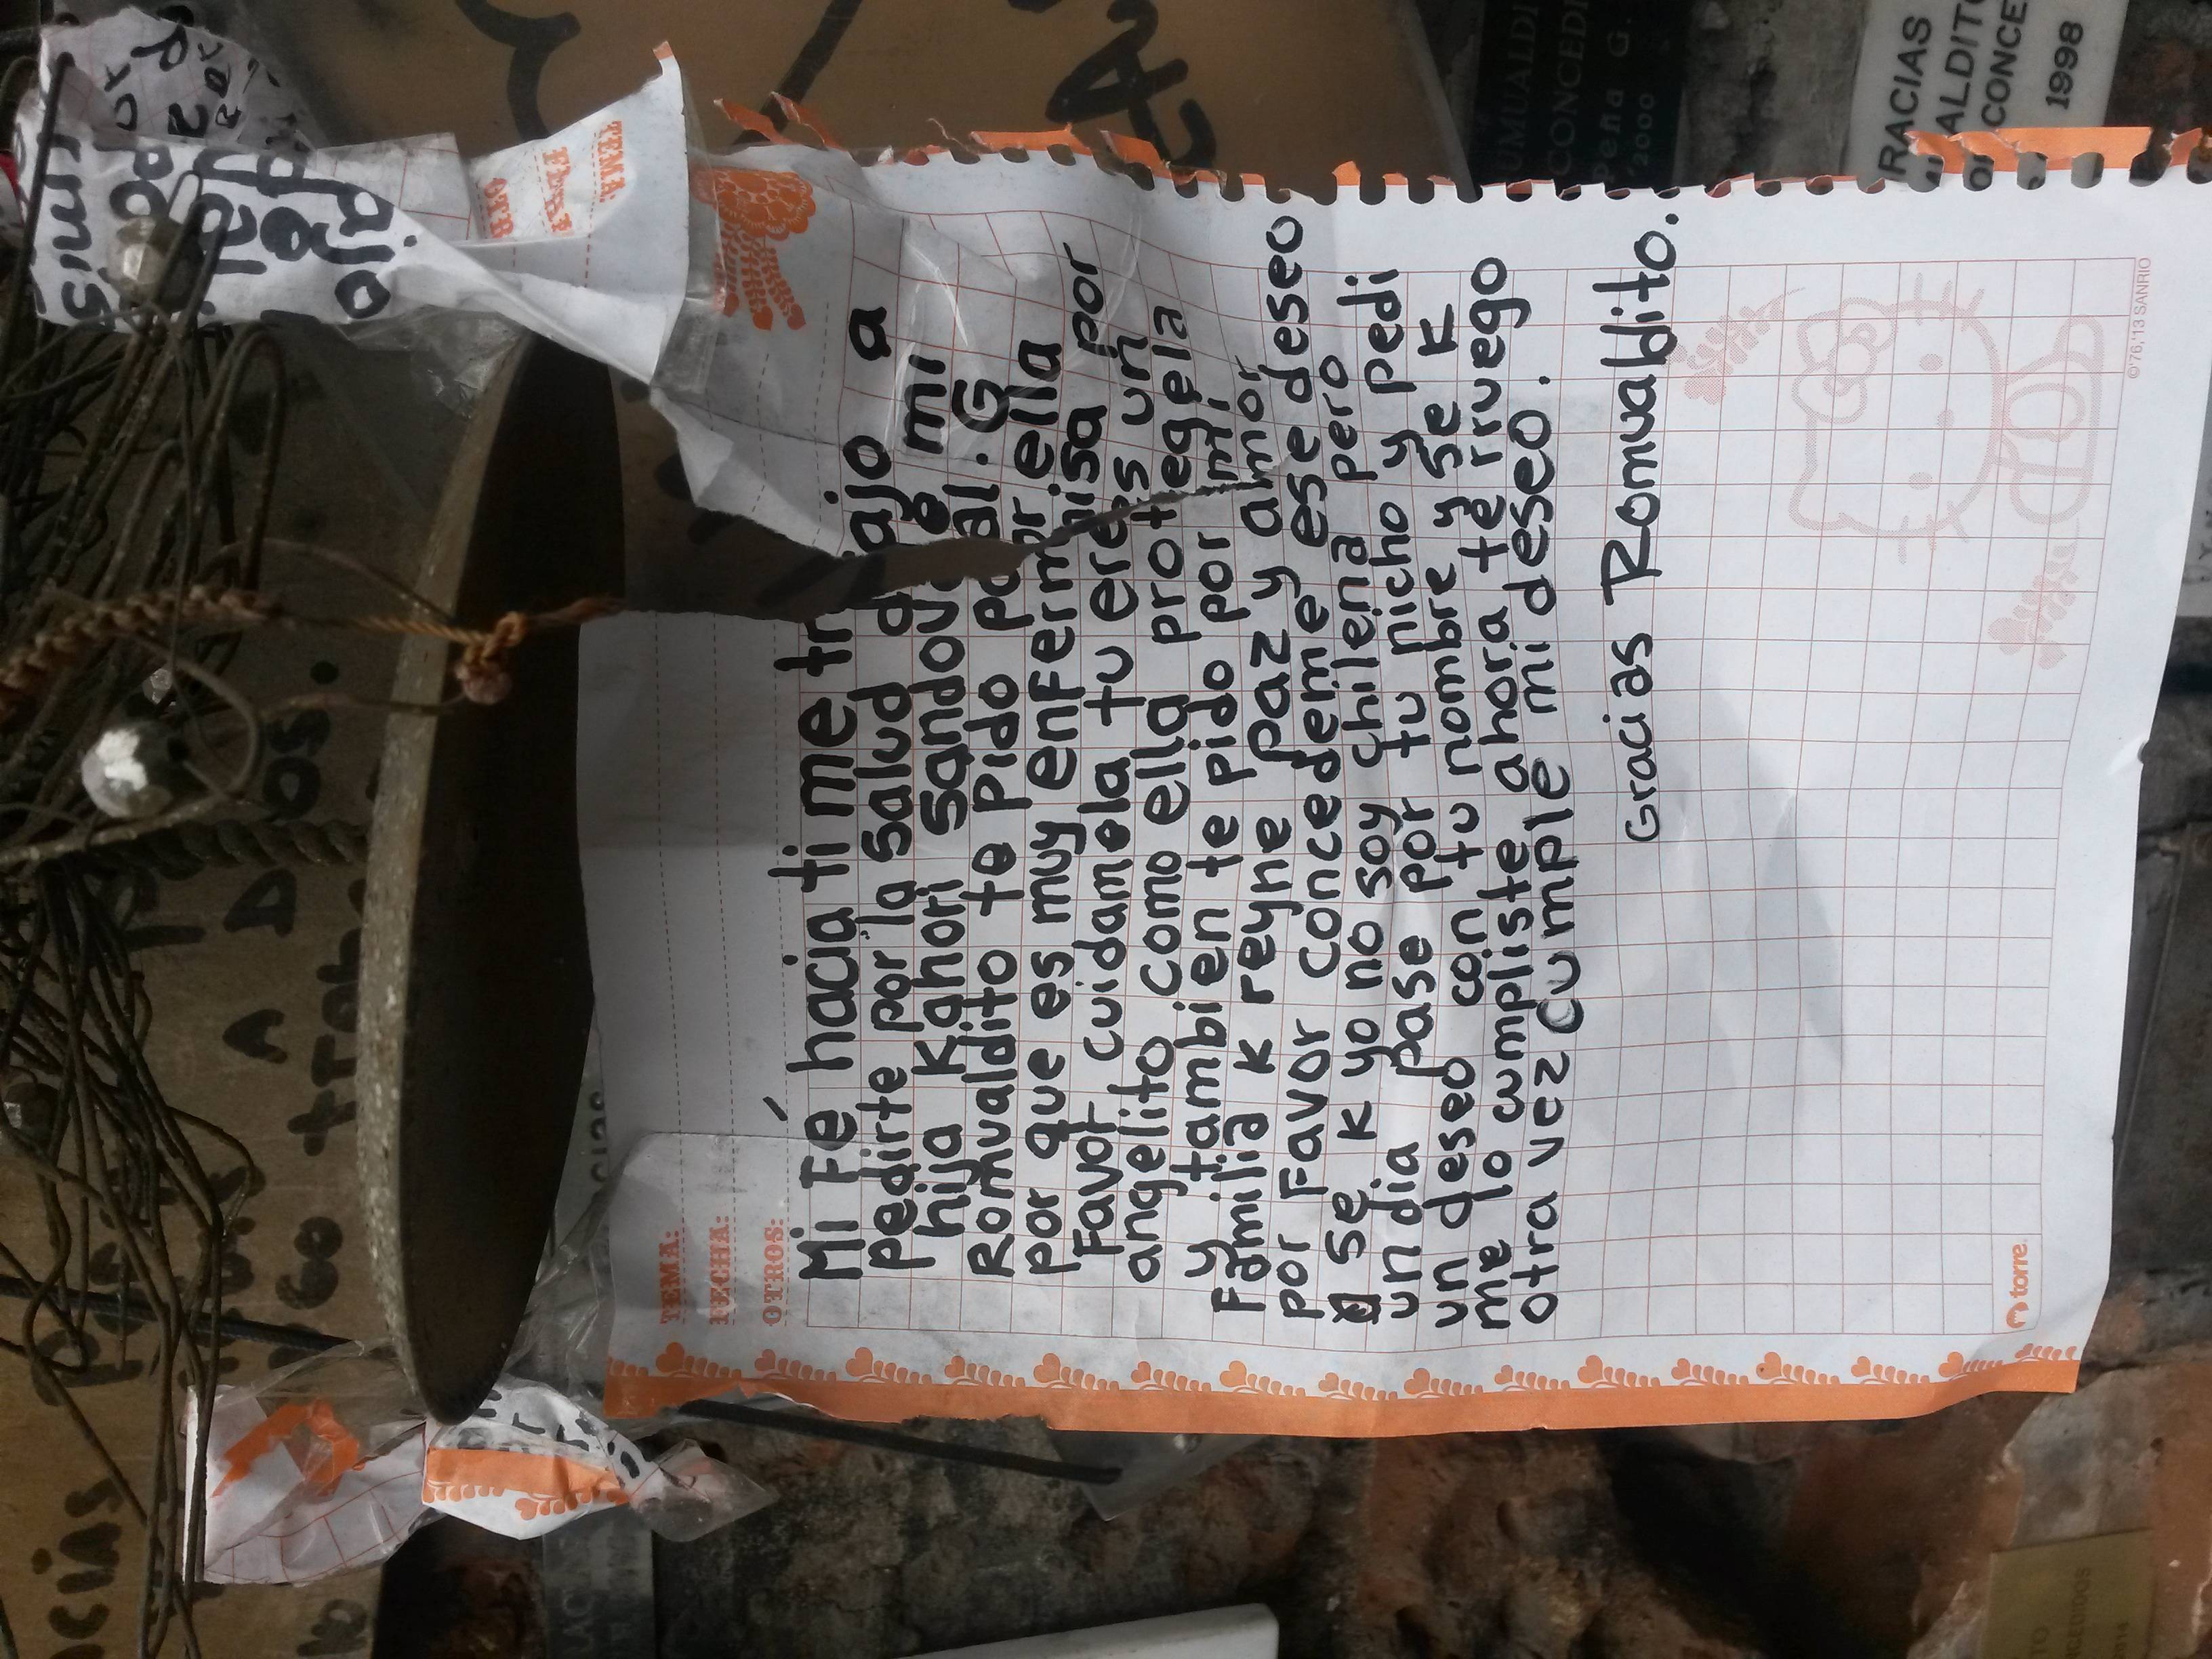 TEMA:
FECHA:
OTROS:
Mi Fé hacia ti me trajo a
pedirte por la salud de mi
hija Kahori Sandoval.G
Romualdito te pido por ella
por que es muy enfermisa por
Favor cuidamela tu eres un
angelito como ella protegela
y tambien te pido por mi
Familia k reyne paz y amor
por Favor concedeme ese deseo
se k yo no soy chilena pero
un dia pase por tu nicho y pedi
un deseo con tu nombre y se k
me lo cumpliste ahora te rruego
otra vez cumple mi deseo.
Gracias Romualdito.
torre
©'76,'13 SANRIO
TEMA:
RACIAS
ALDITO
CONCE
1998
UMUALDI
CONCEDI
Peña G.
2000